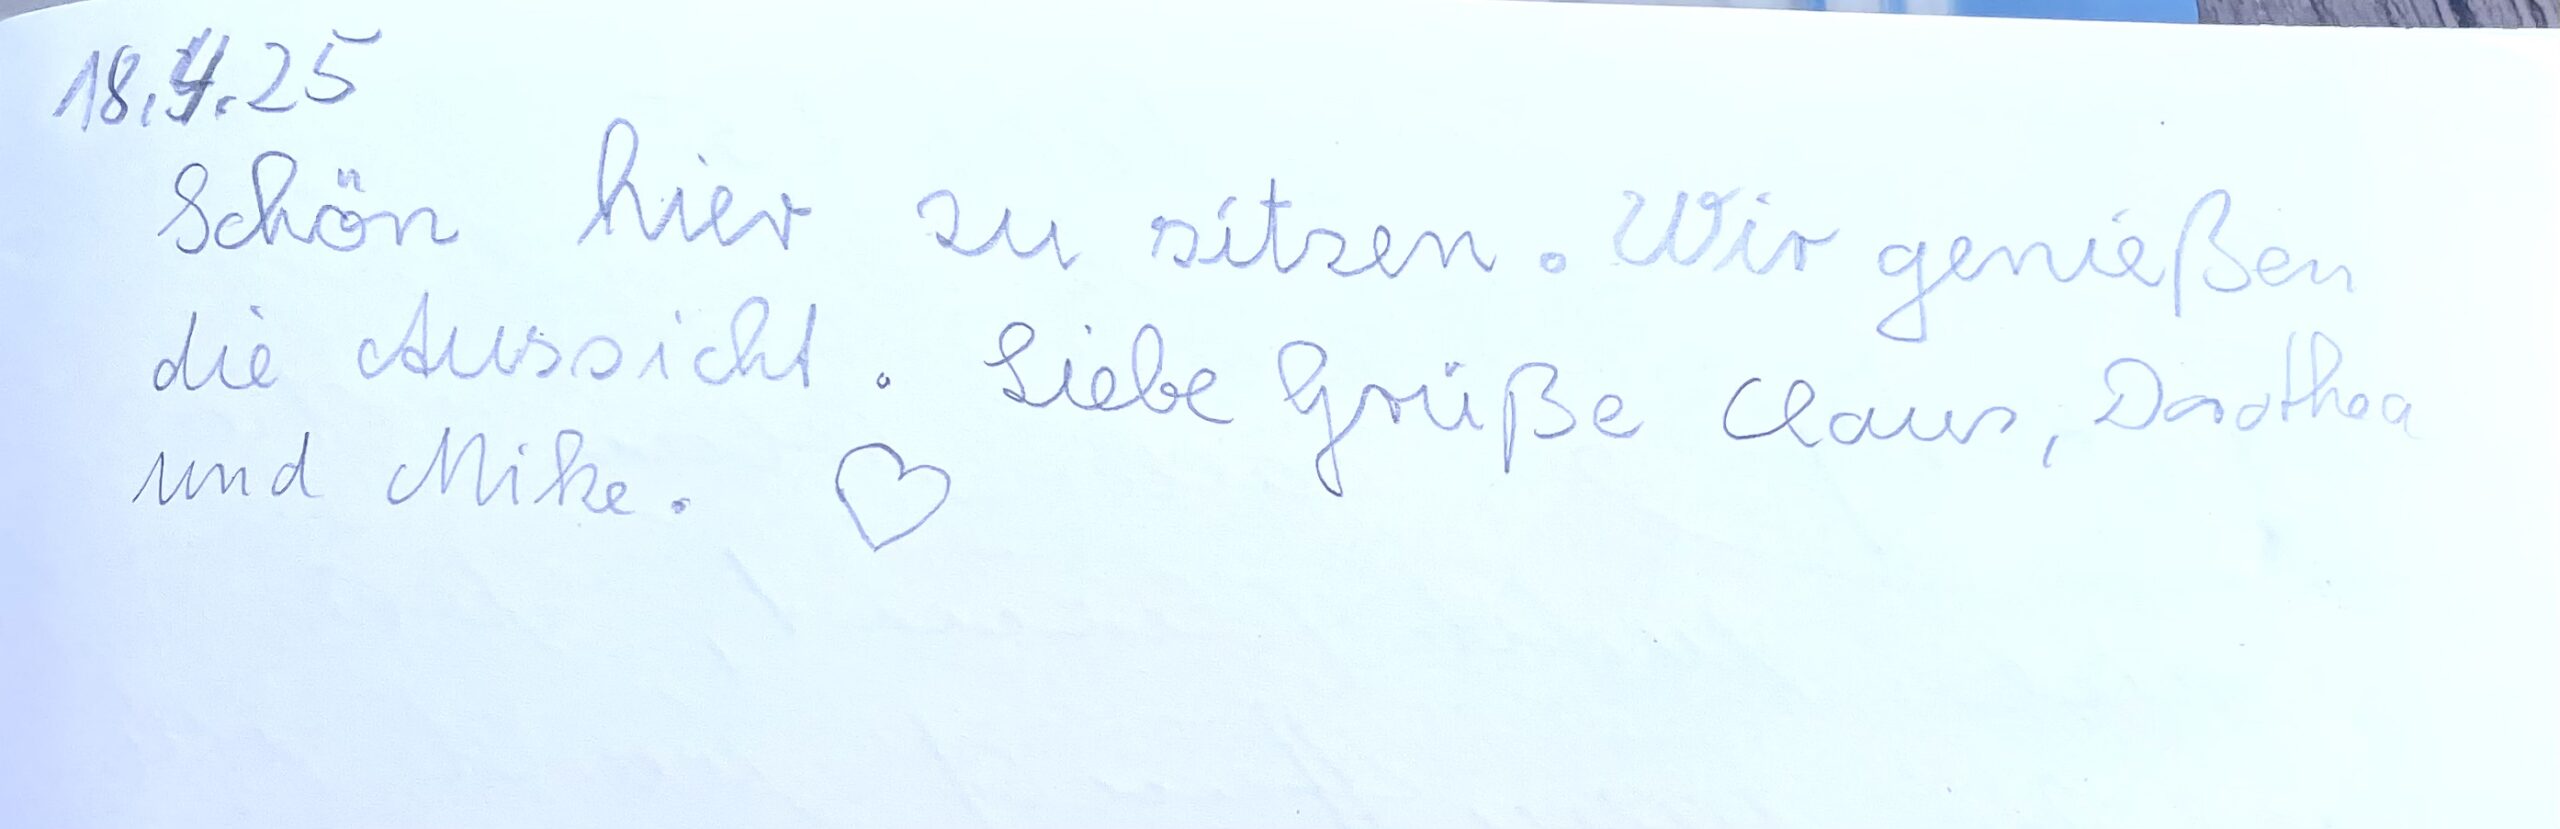 18.4.25
Schön hier zu sitzen. Wir genießen
die Aussicht. Liebe Grüße Claus, Dorothea
und Mike. ♡